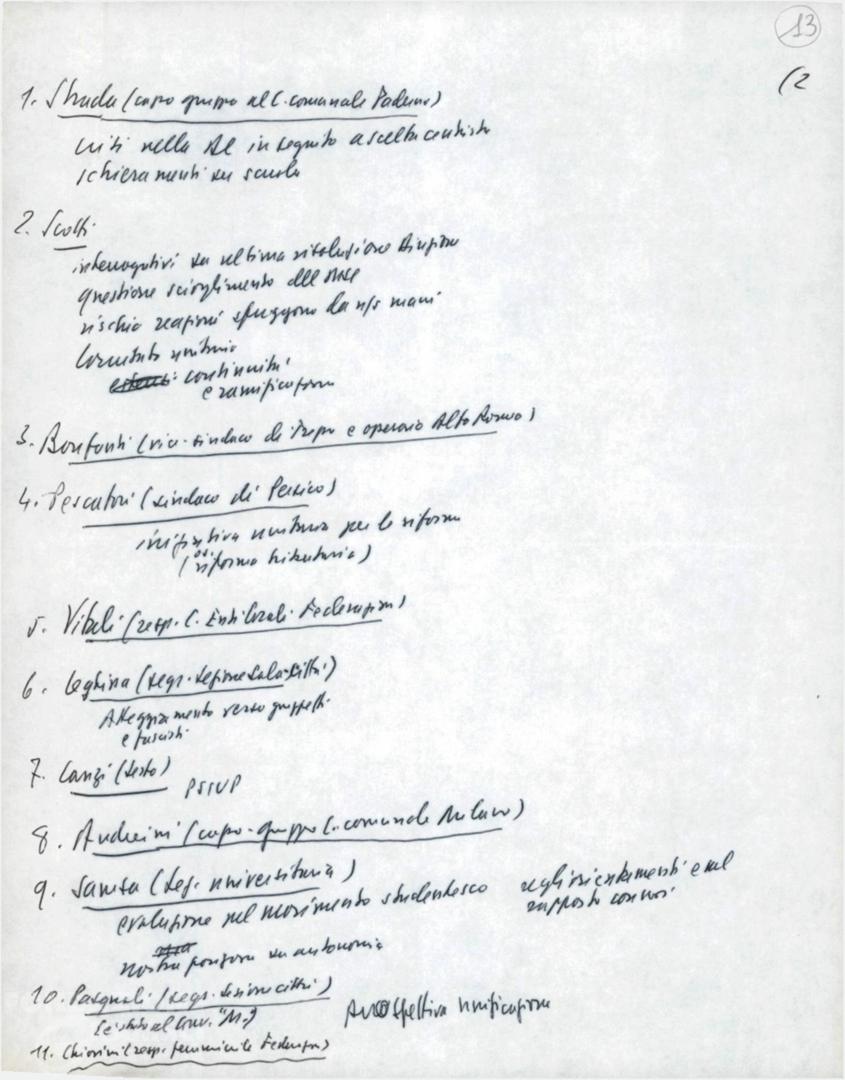 13
(2
1. Strada (capo gruppo al C. comunale Paderno)
crisi nella in seguito a scelta centrista
schieramenti su scuola
2. Scotti
interrogativi su ultima risoluzione Direzione
questione scioglimento del MSI
rischio reazioni sfuggono da ns mani
Comitato unitario
continuità
e ramificazione
3. Bonfanti (vice-sindaco di e operaio Alfa Romeo)
4. Pescatori (sindaco di )
iniziativa unitaria per le riforme
(es. riforma tributaria)
5. Vitali (resp. C. Enti locali Federazione)
6. Leghina (segr. sezione città)
Atteggiamento verso gruppetti
e fascisti
7. Canzi (Sesto) PSIUP
8. Andreini (capo-gruppo C. comunale Milano)
9. Sanna (sez. universitaria)
evoluzione nel movimento studentesco negli orientamenti e nel
rapporto con noi
nostra posizione su autonomia
10. Pasquali (segr. sezione città) Prospettiva unificazione
al
11. (resp. femminile Federazione)